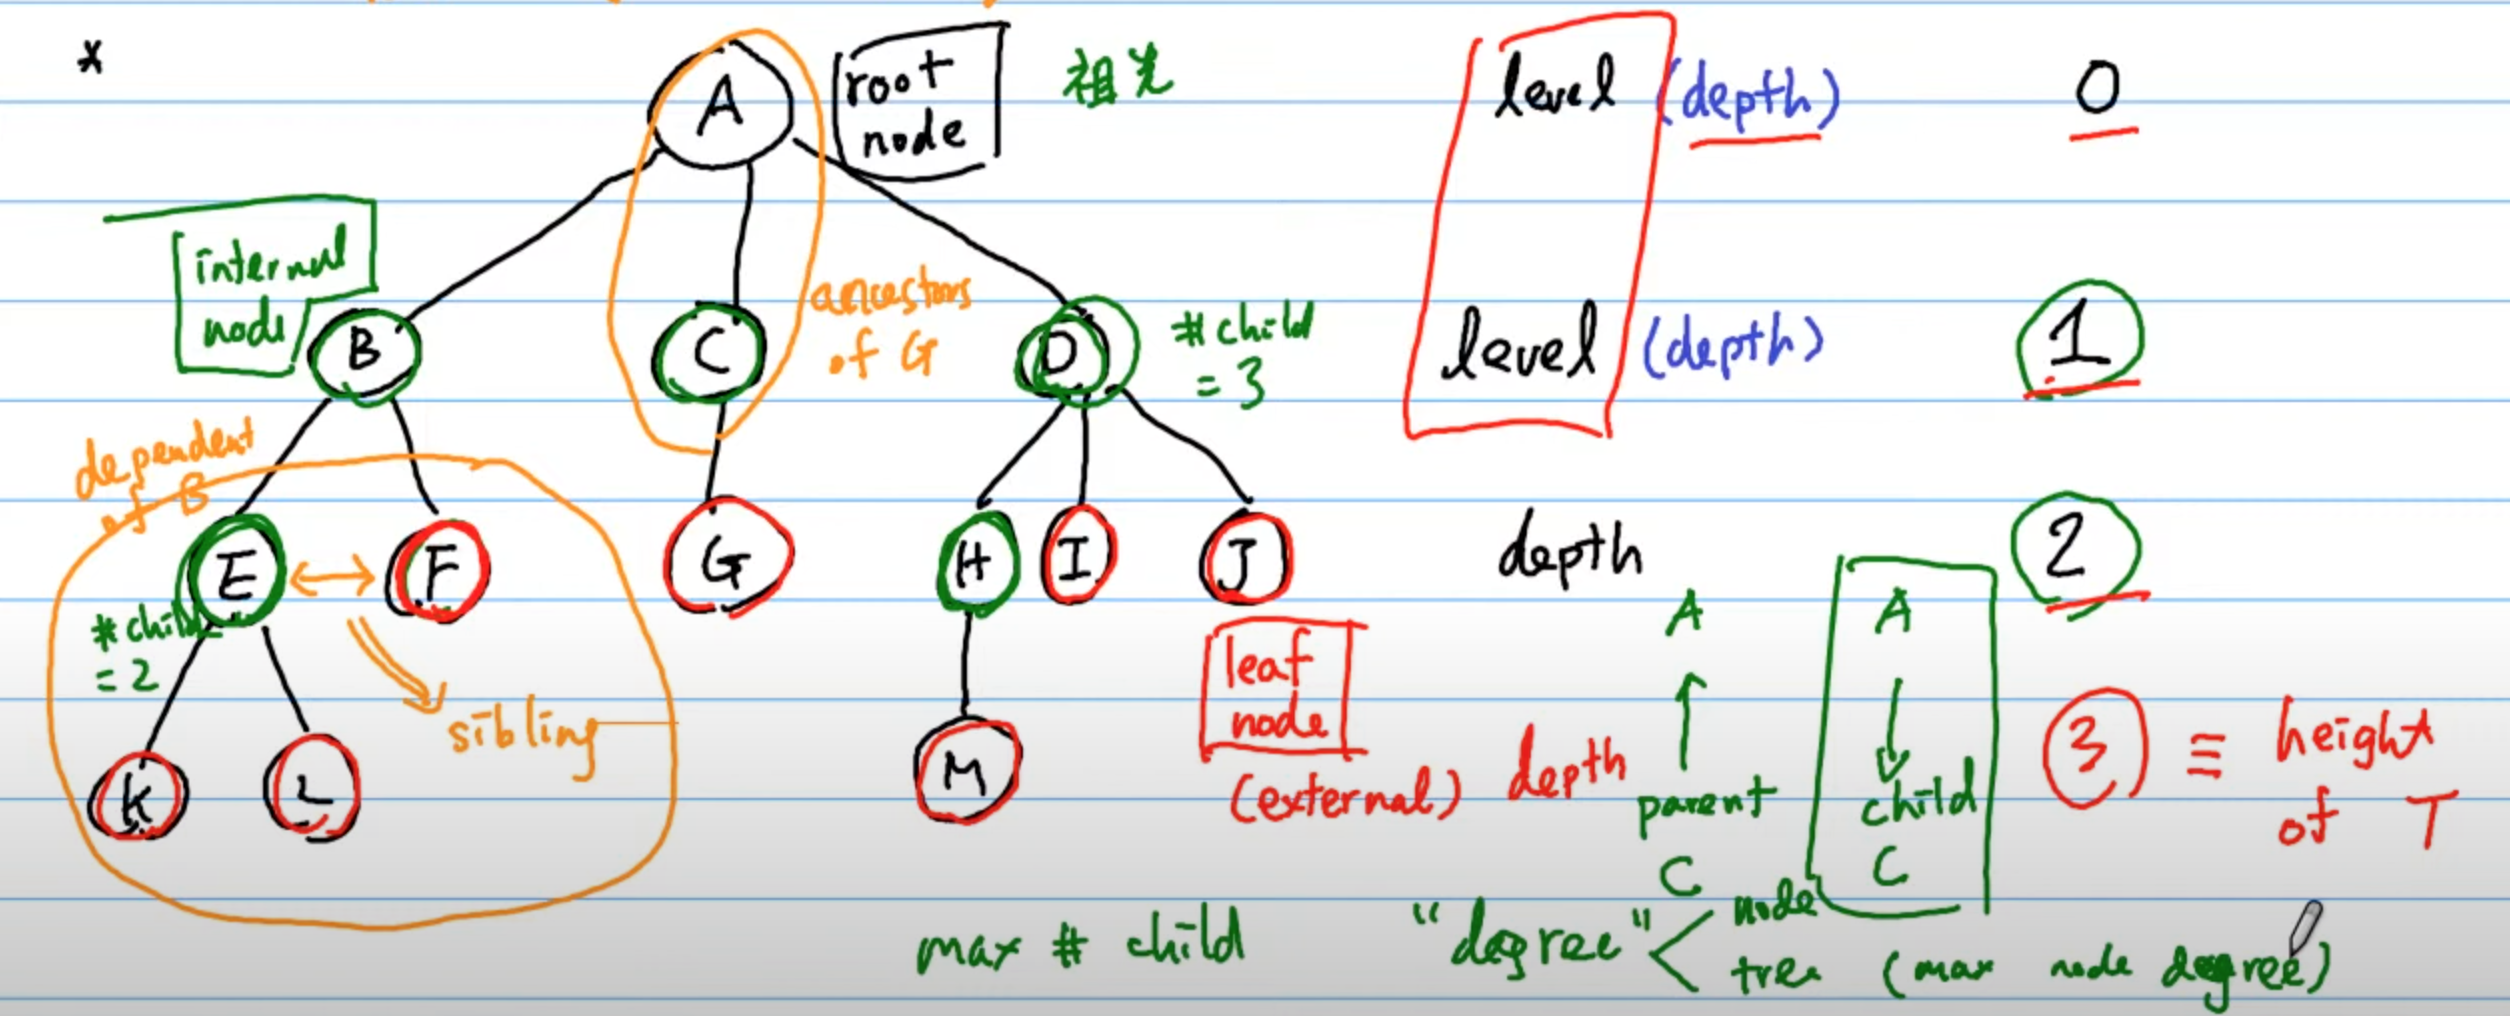 *
A
root
node
祖先
level (depth) 0
internal
node
B
C
D
ancestors
of G
# child
= 3
level (depth) 1
dependent
of B
E
F
G
H
I
J
depth 2
# child
= 2
sibling
K
L
M
leaf
node
(external)
depth
3 ≡ height
of T
A
↑
parent
C
A
↓
child
C
max # child
"degree" <
node
tree (max node degree)